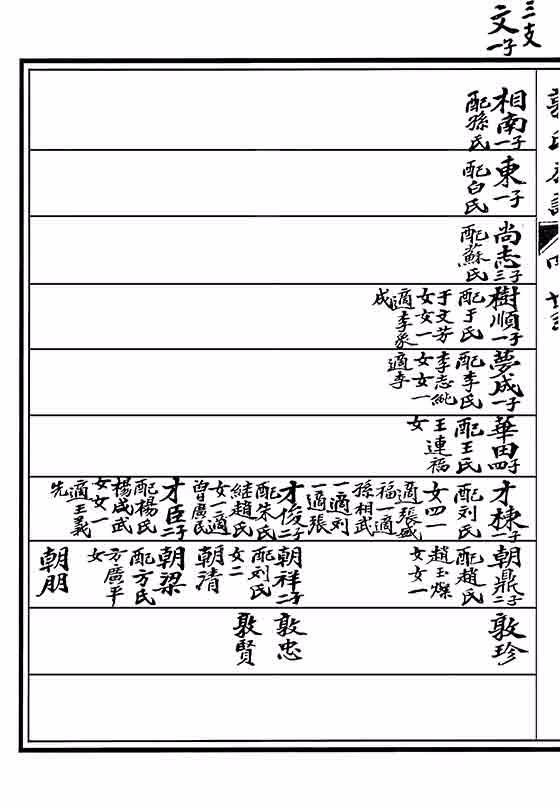 三支
文一子
相南一子
配孫氏
東一子
配白氏
尚志三子
配蘇氏
樹順一子
配于氏
于文芳
女女一
適李象
成
夢成一子
配李氏
李志
女女一
適李
華田四子
配王氏
王連福
女
才棟一子
配刘氏
女四一
適張盛
福一適
孫相武
一適刘
一適張
才俊二子
配朱氏
継趙氏
女一適
曾廣民
才臣二子
配楊氏
楊成武
女女一
適王義
先
朝鼎二子
配趙氏
趙玉燦
女女一
朝祥二子
配刘氏
女二
朝清
朝梁
配方氏
方廣平
女
朝朋
敦珍
敦忠
敦賢